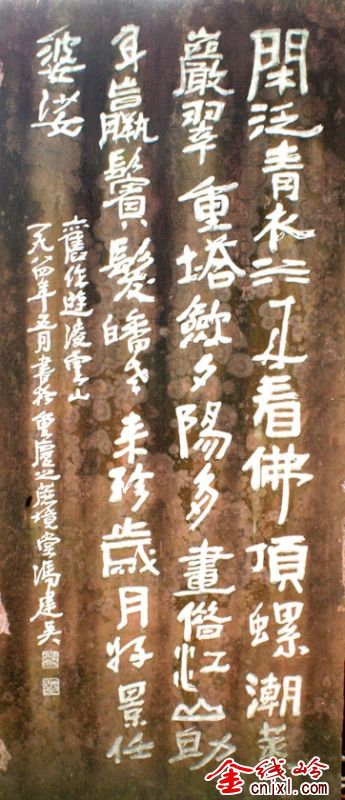 閑泛青衣江来看佛頂螺潮蒸
巖翠重塔斂夕陽多畫借江山助
身羸鬢髮皤老来珍歲月好景任
婆娑
舊作遊凌雲山
一九八四年五月書於重慶之境堂馮建吴
金线岭
www.cnjxl.com